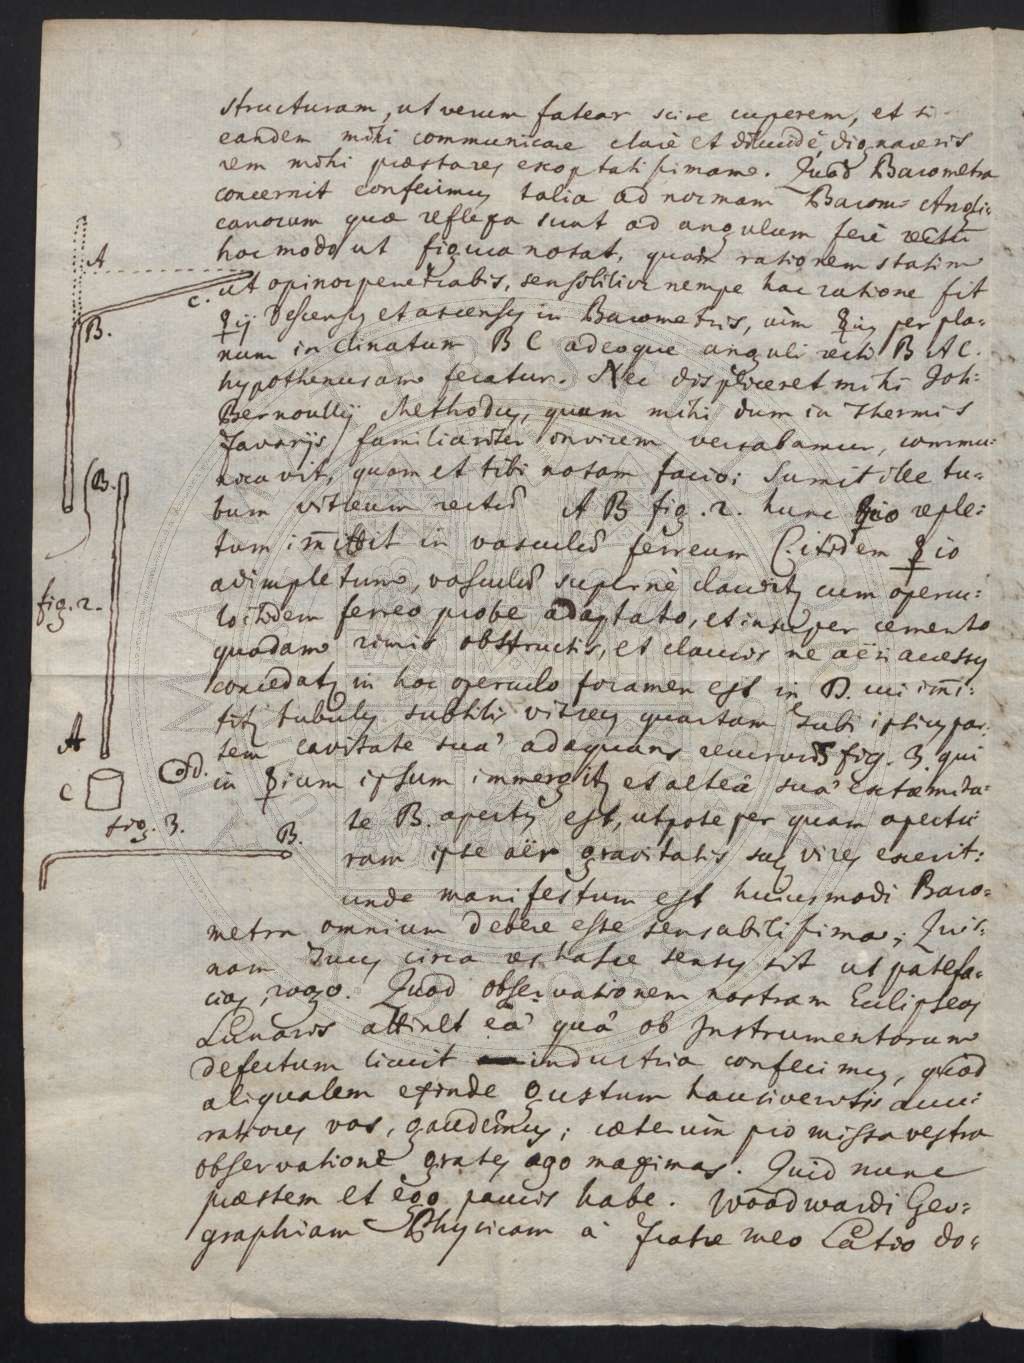 structuram, ut verum fatear scire cuperem, et si
eandem mihi communicare clarè et dilucidè, dignaveris
rem mihi præstares exoptatissimam. Quod Barometra
concernit confecimus talia ad normam Barom: Angli:
canorum quæ reflexa sunt ad angulum ferè rectū
hoc modo ut figura notat, quam rationem statim
ut opinor penetrabis, sensibilior nempe hac ratione fit
☿ij descensus et ascensus in Barometris, cùm ☿ius per pla-
num inclinatum B C adeoque anguli recti B A C.
hypothenusam feratur. Nec displiceret mihi Joh:
Bernoullij Methodus, quam mihi dum in Thermis
Favarijs familiariter invicem versabamur, commu:
nicavit, quam et tibi notam facio; Sumit ille tu-
bum vitreum rectum A B fig. 2. hunc ☿io reple:
tum im̄ittit in vasculum ferreum C. itidem ☿io
adimpletum, vasculum supernè clauditur cum opercu:
lo itidem ferreo probe adaptato, et insuper cemento
quodam rimis obstructis, et clausis ne aëri accessus
concedatur in hoc operculo foramen est in D. cui im̄i:
titur tubulus subtilis vitreus quartam tubi ipsius par:
tem cavitate suâ adæquans recurvus fig. 3. qui
in ☿ium ipsum immergitur et alterâ suâ extremita:
te B. apertus est, utpote per quam apertu:
ram ipse aër gravitatis suæ vires exerit:
unde manifestum est huiusmodi Baro=
metra omnium debere esse sensibilissima; Quis:
nam Tuus circa res hasce sensus sit ut patefa=
cias, rogo. Quod observationem nostram Eclipseos
Lunaris attinet eâ quâ ob Instrumentorum
defectum licuit industria confecimus, quod
aliqualem exinde gustum hauriveritis accu:
ratiores vos, gaudemus; cæterùm pro missa vestra
observatione grates ago maximas. Quid nunc
præstem et ego paucis habe. Woodwardi Geo=
graphiam Physicam à Fratre meo Latio do=
A
C.
B.
B.
fig. 2.
A
C
d.
fig. 3.
B.